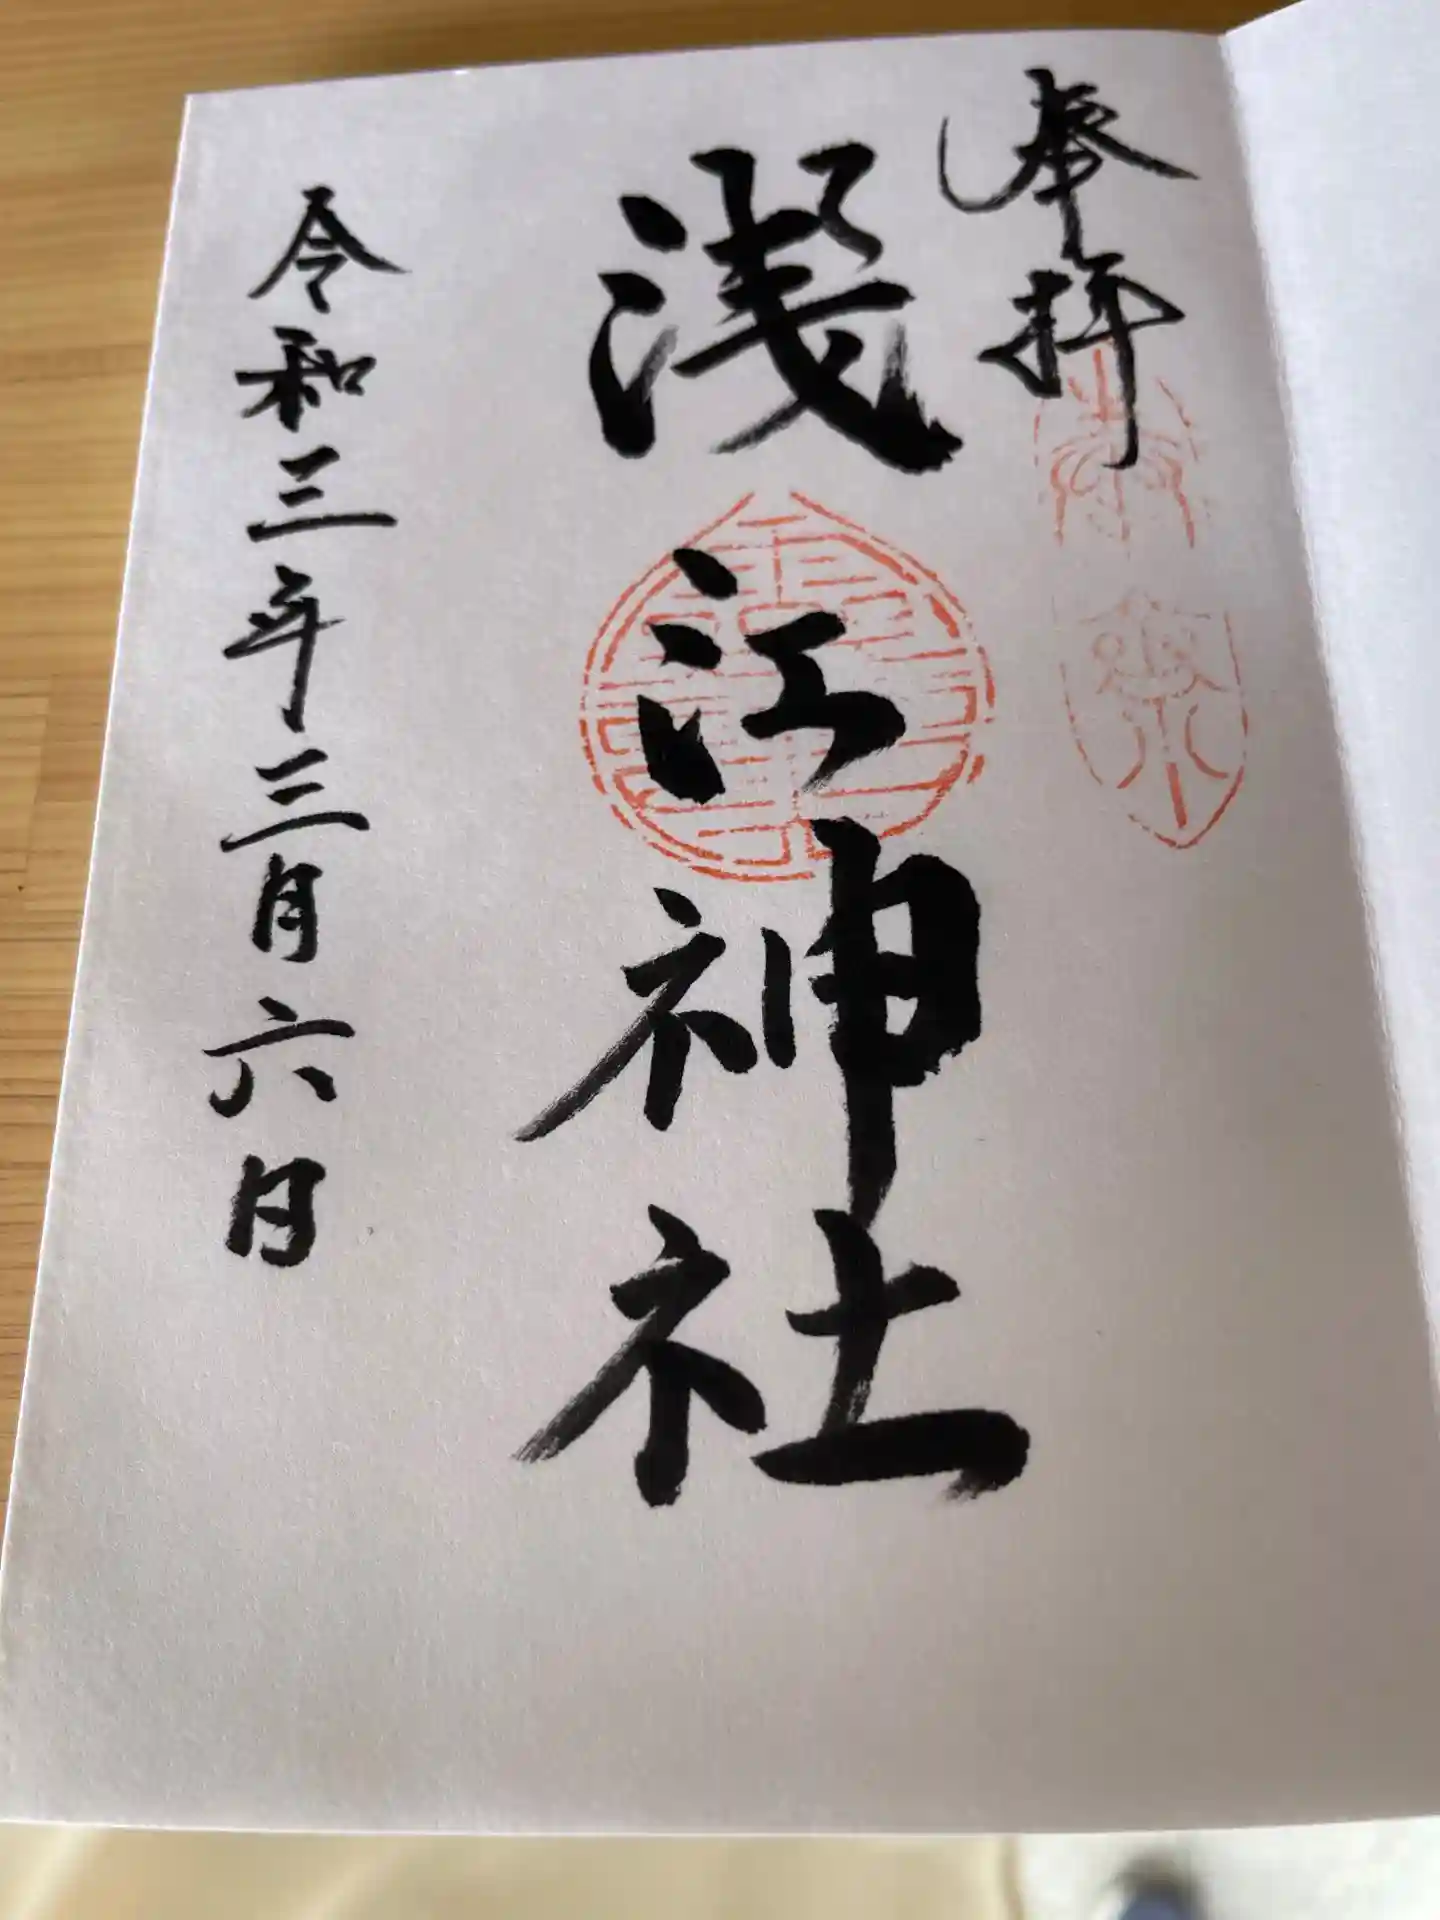 奉拝
淺江神社
令和三年三月六日